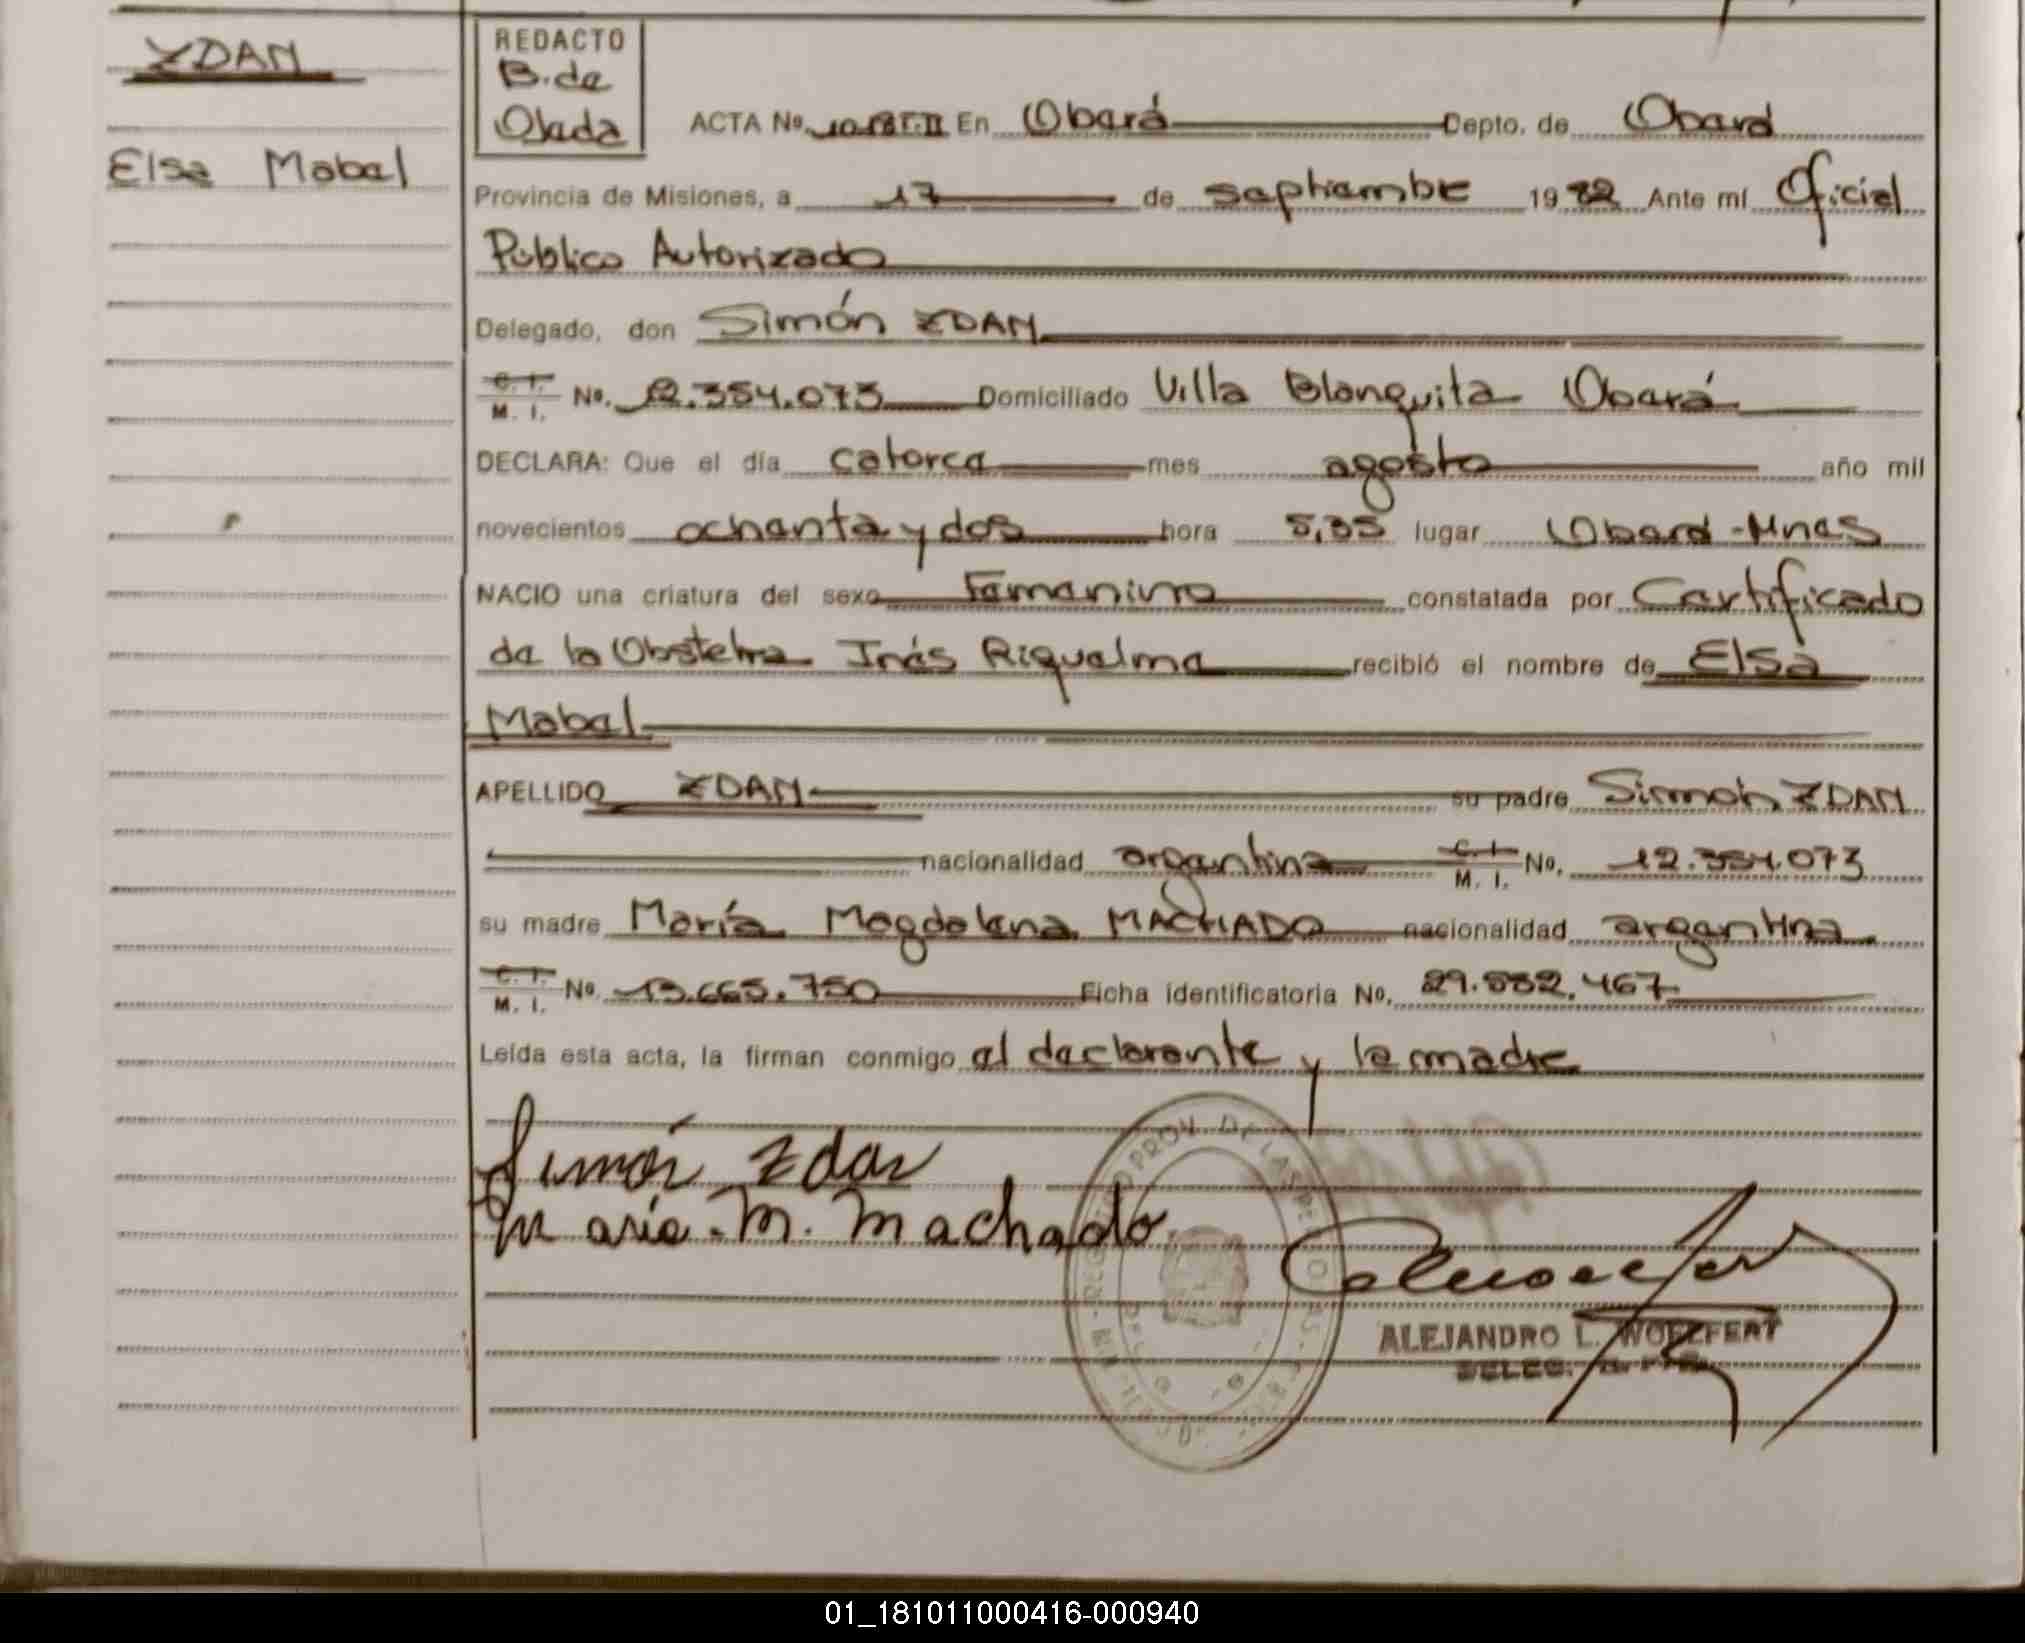 ZDAN
Elsa Mabel
REDACTO
B. de
Ojeda
ACTA Nº 1018T.II En Oberá Depto. de Oberá
Provincia de Misiones, a 17 de septiembre 1982 Ante mí Oficial
Público Autorizado
Delegado, don Simón ZDAN
C. I. M. I. Nº. 12.354.073 Domiciliado Villa Blanquita Oberá
DECLARA: Que el día catorce mes agosto año mil
novecientos ochenta y dos hora 5,35 lugar Oberá-Mnes
NACIO una criatura del sexo Femenino constatada por Certificado
de la Obstetra Inés Riquelme recibió el nombre de Elsa
Mabel
APELLIDO ZDAN su padre Simón ZDAN
nacionalidad argentina C. I. M. I. No. 12.354.073
su madre María Magdalena MACHADO nacionalidad argentina
C. I. M. I. Nº 13.665.750 Ficha identificatoria No. 29.582.467
Leída esta acta, la firman conmigo el declarante y la madre
Simón Zdan
Maria. M. Machado
PROV. DE LAS PERSONAS
ALEJANDRO L. WOELFERT
DELEG.
01_181011000416-000940